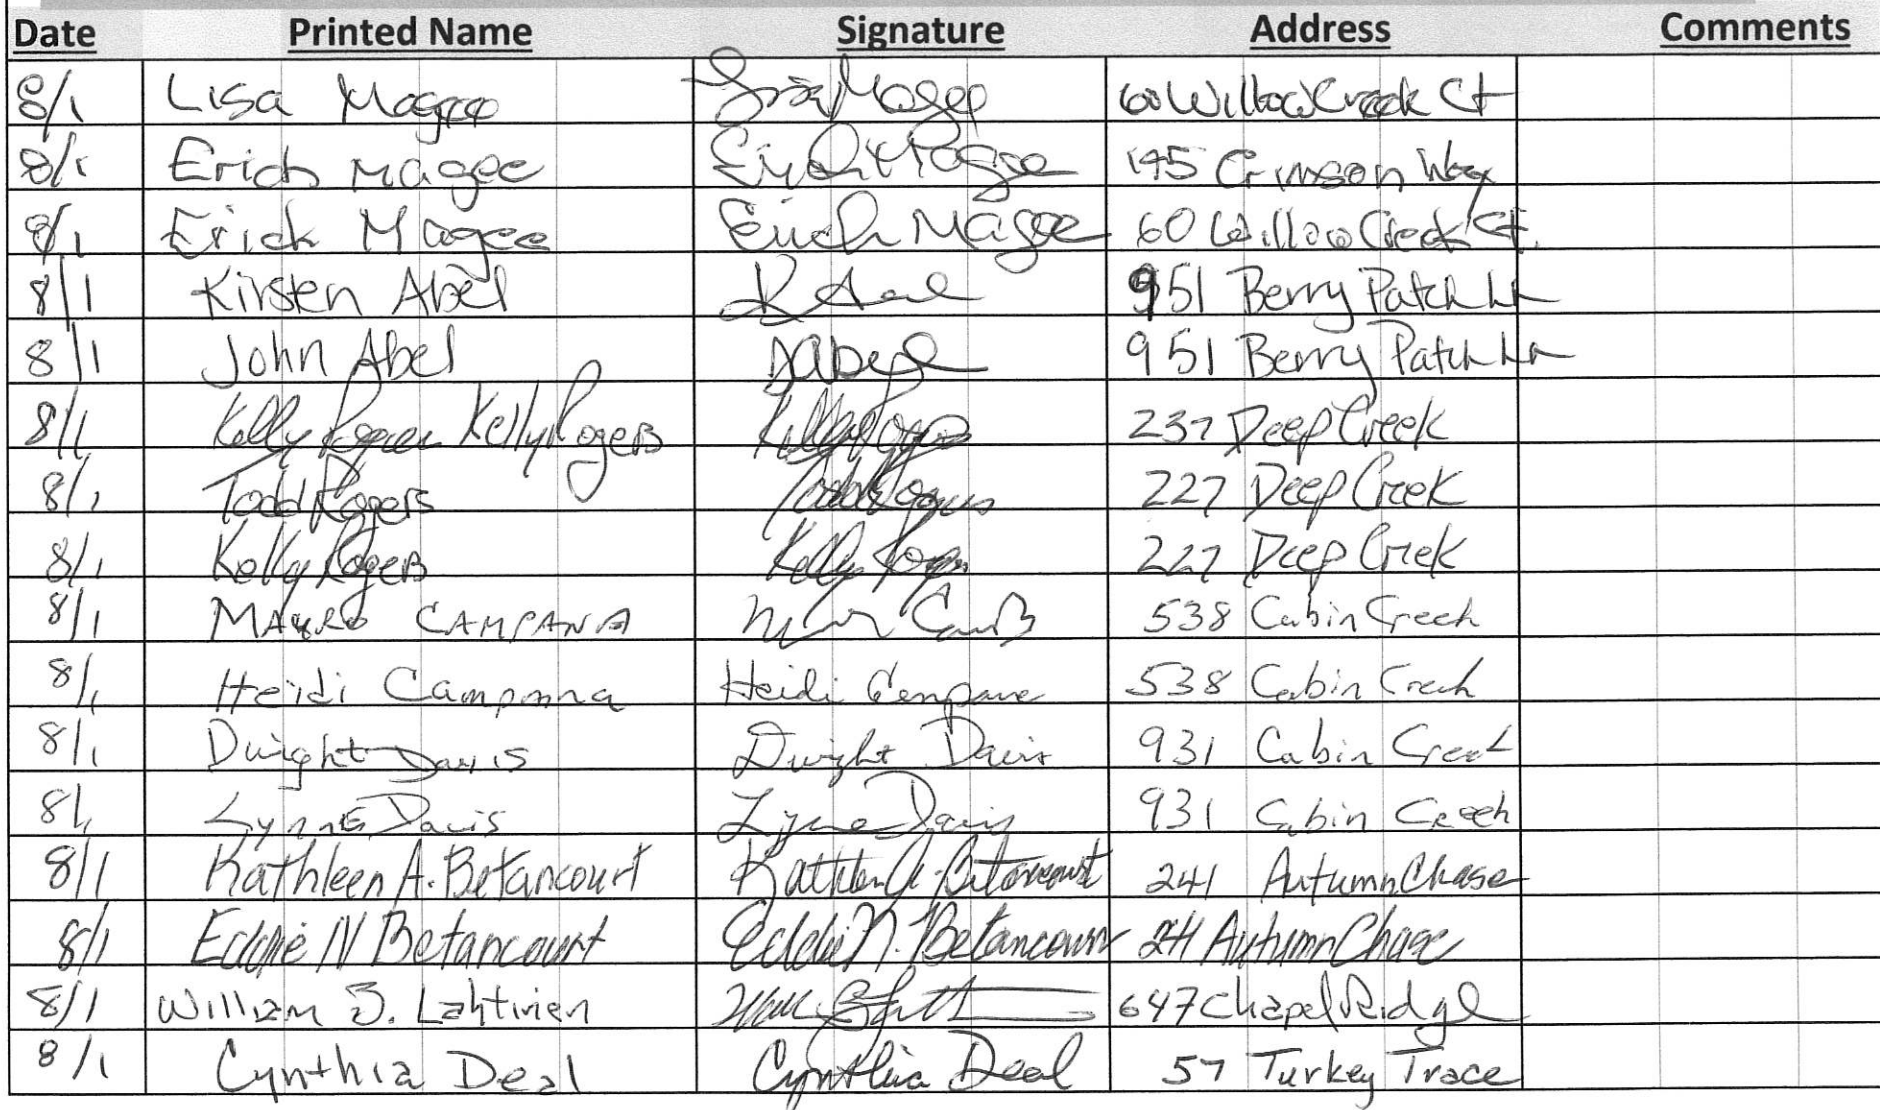 Date Printed Name Signature Address Comments
8/1 Lisa Magee Lisa Magee 60 Willow Creek Ct
8/1 Erich Magee Erich Magee 195 Crimson Way
8/1 Erick Magee Erich Magee 60 Willow Creek Ct.
8/1 Kirsten Abel K Abel 951 Berry Patch Ln
8/1 John Abel JAbel 951 Berry Patch Ln
8/1 Kelly Rogers Kelly Rogers Kelly Rogers 237 Deep Creek
8/1 Todd Rogers Todd Rogers 227 Deep Creek
8/1 Kelly Rogers Kelly Rogers 227 Deep Creek
8/1 MAURO CAMPANA 538 Cabin Creek
8/1 Heidi Campana Heidi Campana 538 Cabin Creek
8/1 Dwight Davis Dwight Davis 931 Cabin Creek
8/1 Lynne Davis Lynne Davis 931 Cabin Creek
8/1 Kathleen A. Betancourt Kathleen A. Betancourt 241 Autumn Chase
8/1 Eddie N Betancourt Eddie N. Betancourt 241 Autumn Chase
8/1 William B. Lahtinen 647 Chapel Ridge
8/1 Cynthia Deal Cynthia Deal 57 Turkey Trace